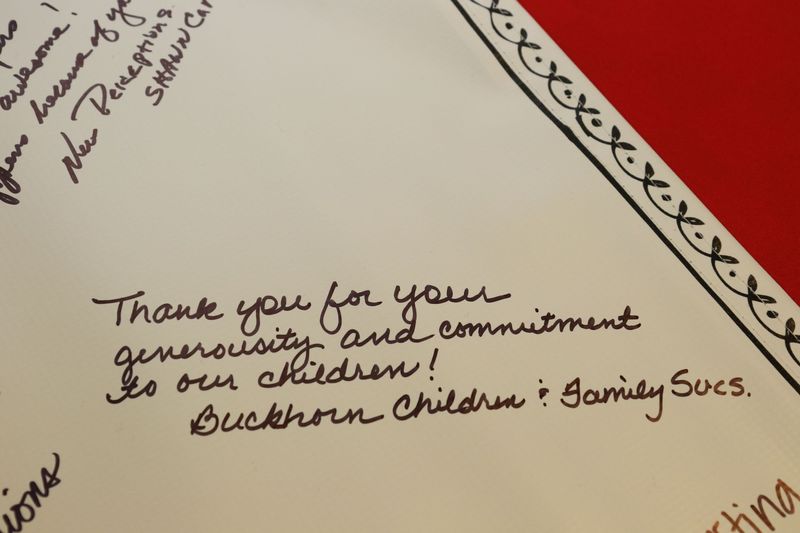 awesome!
because of yo
New Perceptions.
SHAWN Car
Thank you for your
generousity and commitment
to our children!
Buckhorn Children & Family Svcs.
ions
rting